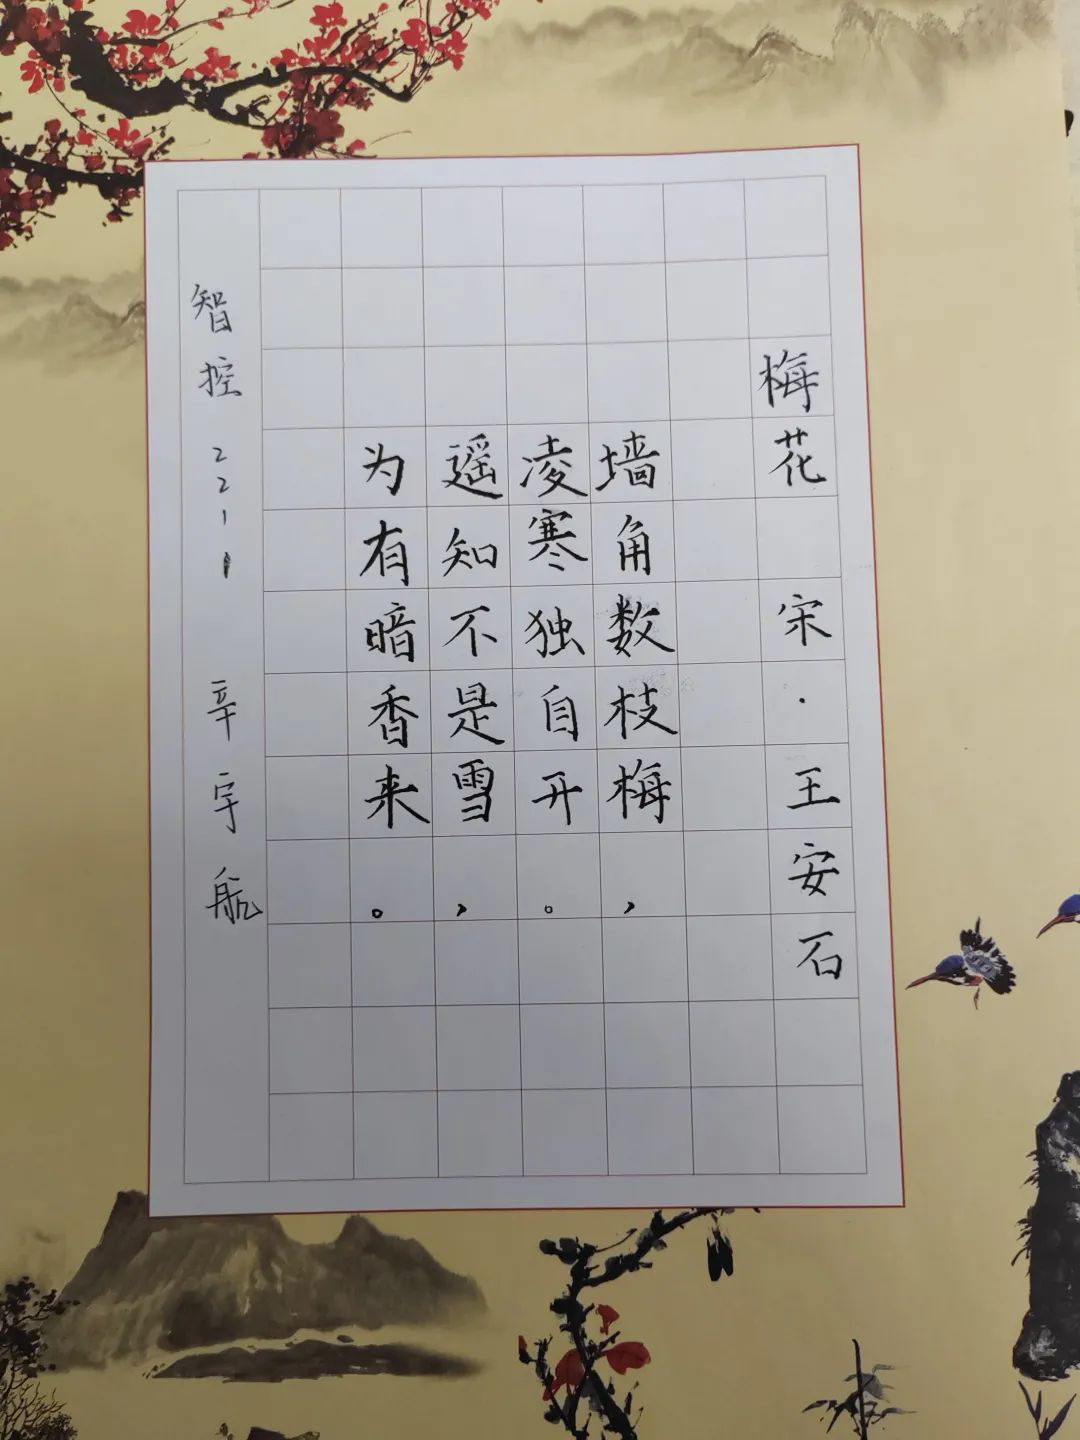 梅花 宋·王安石
墙角数枝梅，
凌寒独自开。
遥知不是雪，
为有暗香来。
智控2211 辛宇航